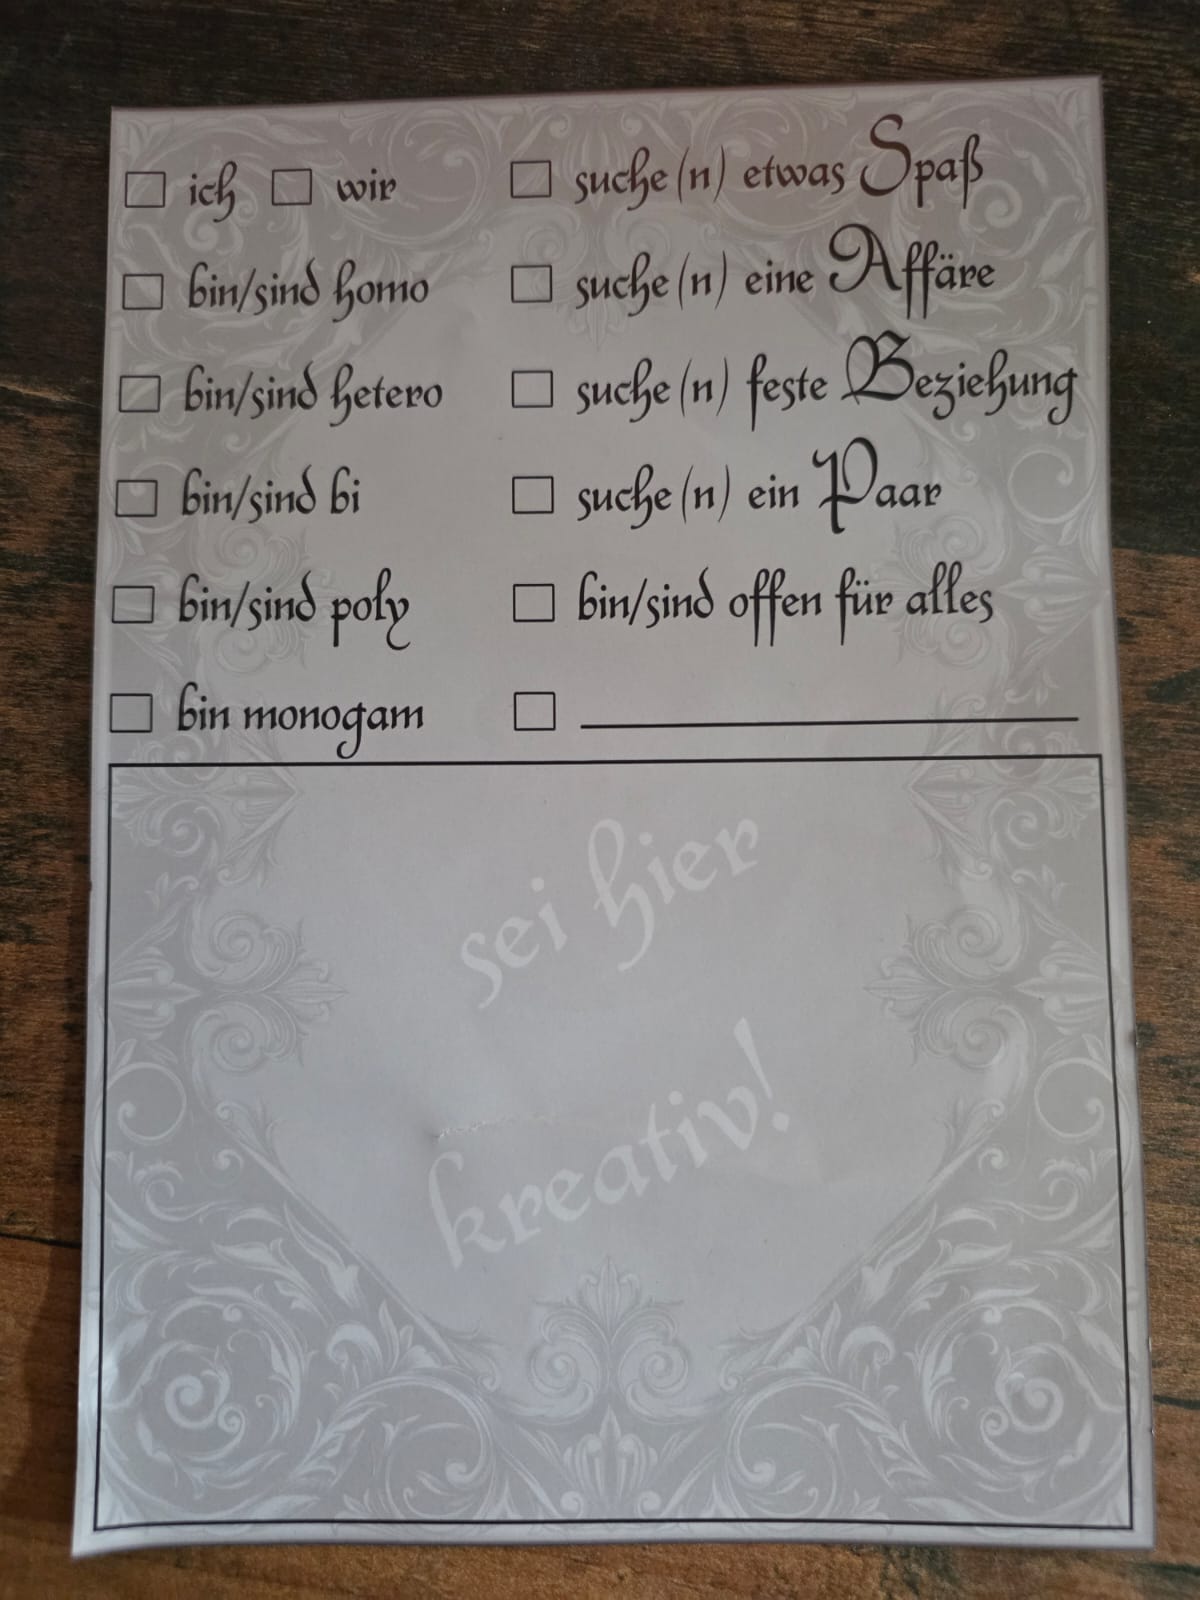 ich wir
bin/sind homo
bin/sind hetero
bin/sind bi
bin/sind poly
bin monogam
suche(n) etwas Spaß
suche(n) eine Affäre
suche(n) feste Beziehung
suche(n) ein Paar
bin/sind offen für alles
sei hier
kreativ!